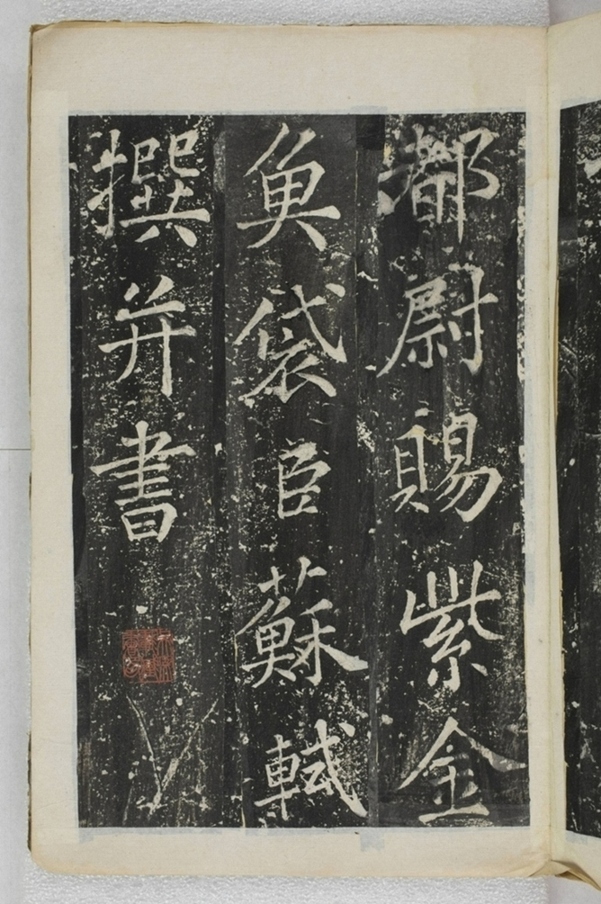 都尉賜紫金
魚袋臣蘇軾
撰并書